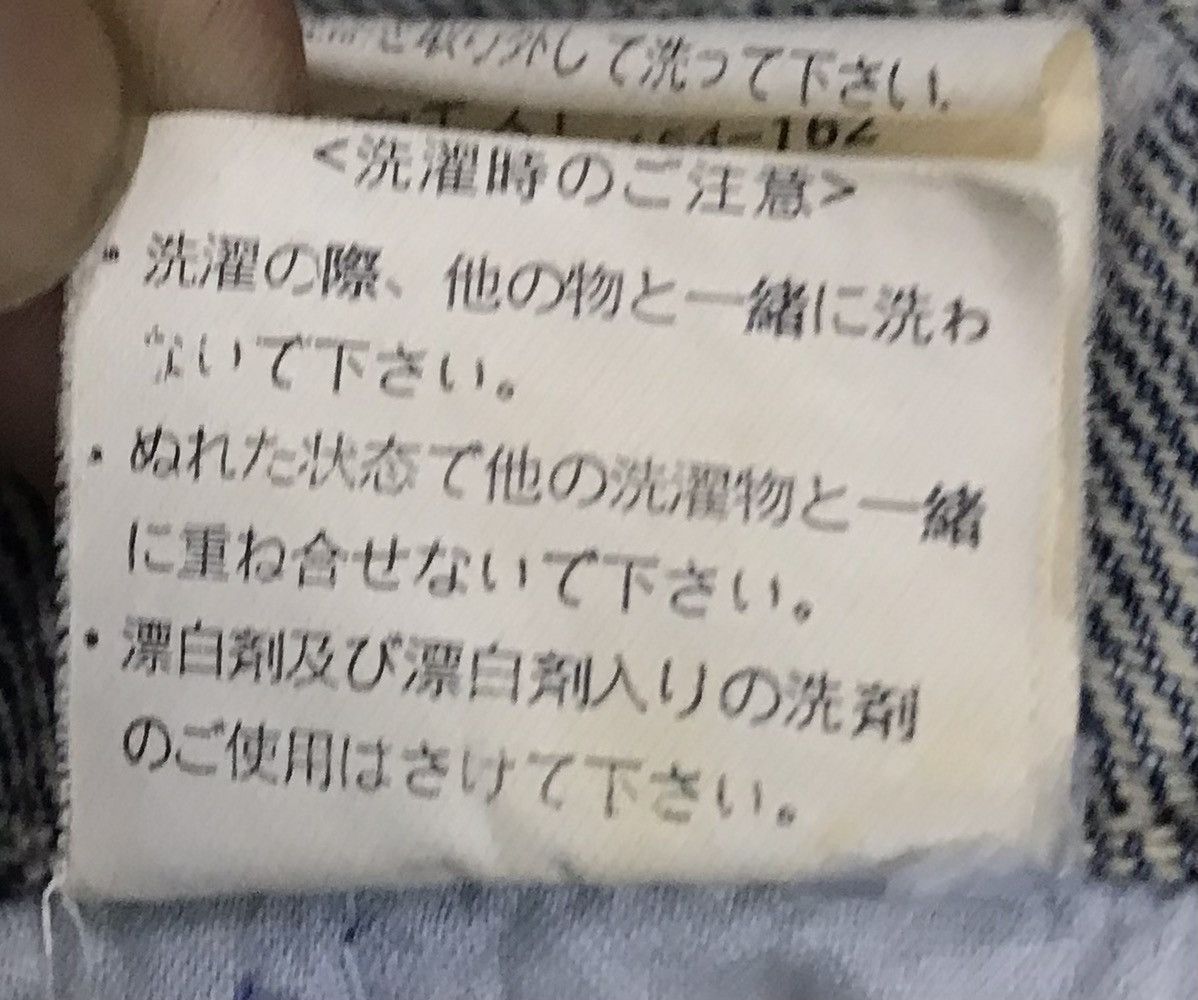 取り外して洗って下さい。
-162
<洗濯時のご注意>
・洗濯の際、他の物と一緒に洗わ
ないで下さい。
・ぬれた状態で他の洗濯物と一緒
に重ね合せないで下さい。
・漂白剤及び漂白剤入りの洗剤
のご使用はさけて下さい。